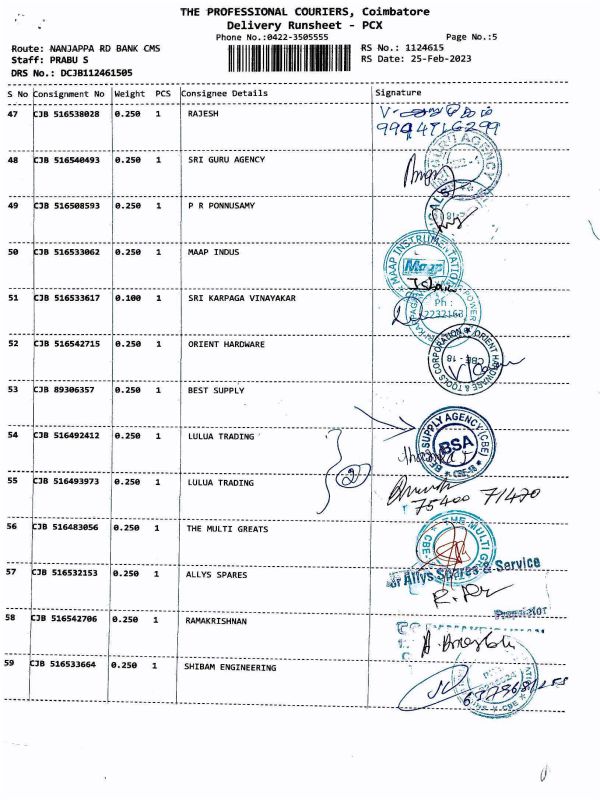 THE PROFESSIONAL COURIERS, Coimbatore
Delivery Runsheet - PCX
Phone No.:0422-3505555 Page No.:5
Route: NANJAPPA RD BANK CMS RS No.: 1124615
Staff: PRABU S RS Date: 25-Feb-2023
DRS No.: DCJB112461505
S No Consignment No Weight PCS Consignee Details Signature
47 CJB 516538028 0.250 1 RAJESH
48 CJB 516540493 0.250 1 SRI GURU AGENCY
GURU AGENCY
49 CJB 516508593 0.250 1 P R PONNUSAMY
50 CJB 516533062 0.250 1 MAAP INDUS
MAAP INSTRUMENTATION
Maap
51 CJB 516533617 0.100 1 SRI KARPAGA VINAYAKAR
Ph :
2232168
52 CJB 516542715 0.250 1 ORIENT HARDWARE
ORIENT HARDWARE & TOOLS CORPORATION
CBE - 18
53 CJB 89306357 0.250 1 BEST SUPPLY
SUPPLY AGENCY (CBE)
BSA
CBE-18
54 CJB 516492412 0.250 1 LULUA TRADING
2
55 CJB 516493973 0.250 1 LULUA TRADING
75400 71470
56 CJB 516483056 0.250 1 THE MULTI GREATS
THE MULTI
CBE-
57 CJB 516532153 0.250 1 ALLYS SPARES
or Allys Spares & Service
Proprietor
58 CJB 516542706 0.250 1 RAMAKRISHNAN
59 CJB 516533664 0.250 1 SHIBAM ENGINEERING
CBE